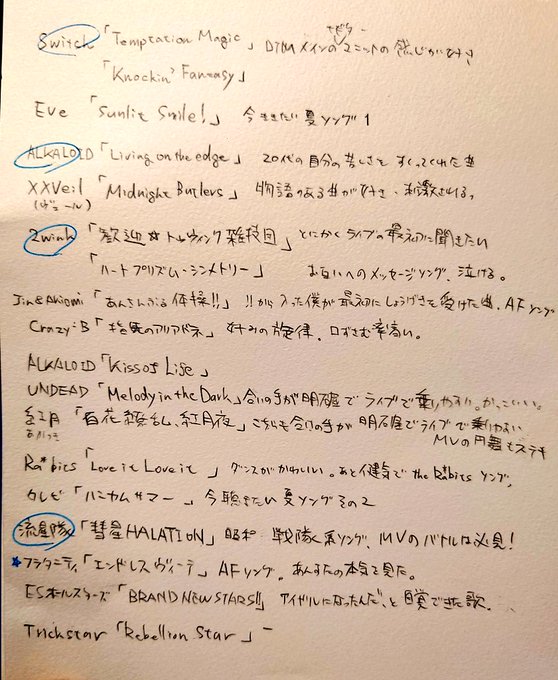 Switch「Temptation Magic」DTMメインのユニットの感じが好き
「Knockin' Fantasy」
Eve 「Sunlit Smile!」 今ききたい夏ソング1
ALKALOID「Living on the edge」 20代の自分の苦しさをすくってくれた曲
XXVeil「Midnight Butlers」 物語のある曲が好き、刺激される。
(ヴェール)
2wink 「歓迎☆トゥウィンク雑技団」とにかくライブの最初に聞きたい
「ハートプリズム・シンメトリー」 お互いへのメッセージソング、泣ける。
Jin&Akiomi「あんさんぶる体操!!」!!から入った僕が最初にしょうげきを受けた曲、AFソング
Crazy:B「指先のアリアドネ」 好みの旋律、口ずさむ率高い。
ALKALOID「Kiss of Life」
UNDEAD「Melody in the Dark」合いの手が明確でライブで乗りやすい。かっこいい。
紅月「百花繚乱、紅月夜」こちらも合いの手が明確でライブで乗りやすい
あかつき MVの円舞もステキ
Ra*bits「Love it Love it」 ダンスがかわいい。あと健気で the Ra*bits ソング。
カレビ「ハニカムサマー」 今聴きたい夏ソングその2
流星隊「彗星HALATION」 昭和 戦隊系ソング、MVのバトルは必見!
★フラタニティ「エンドレスヴィーテ」AFソング。あんすたの本気を見た。
ESオールスターズ「BRAND NEW STARS!!」 アイドルになったんだ、と自覚できた歌。
Trickstar「Rebellion Star」ー